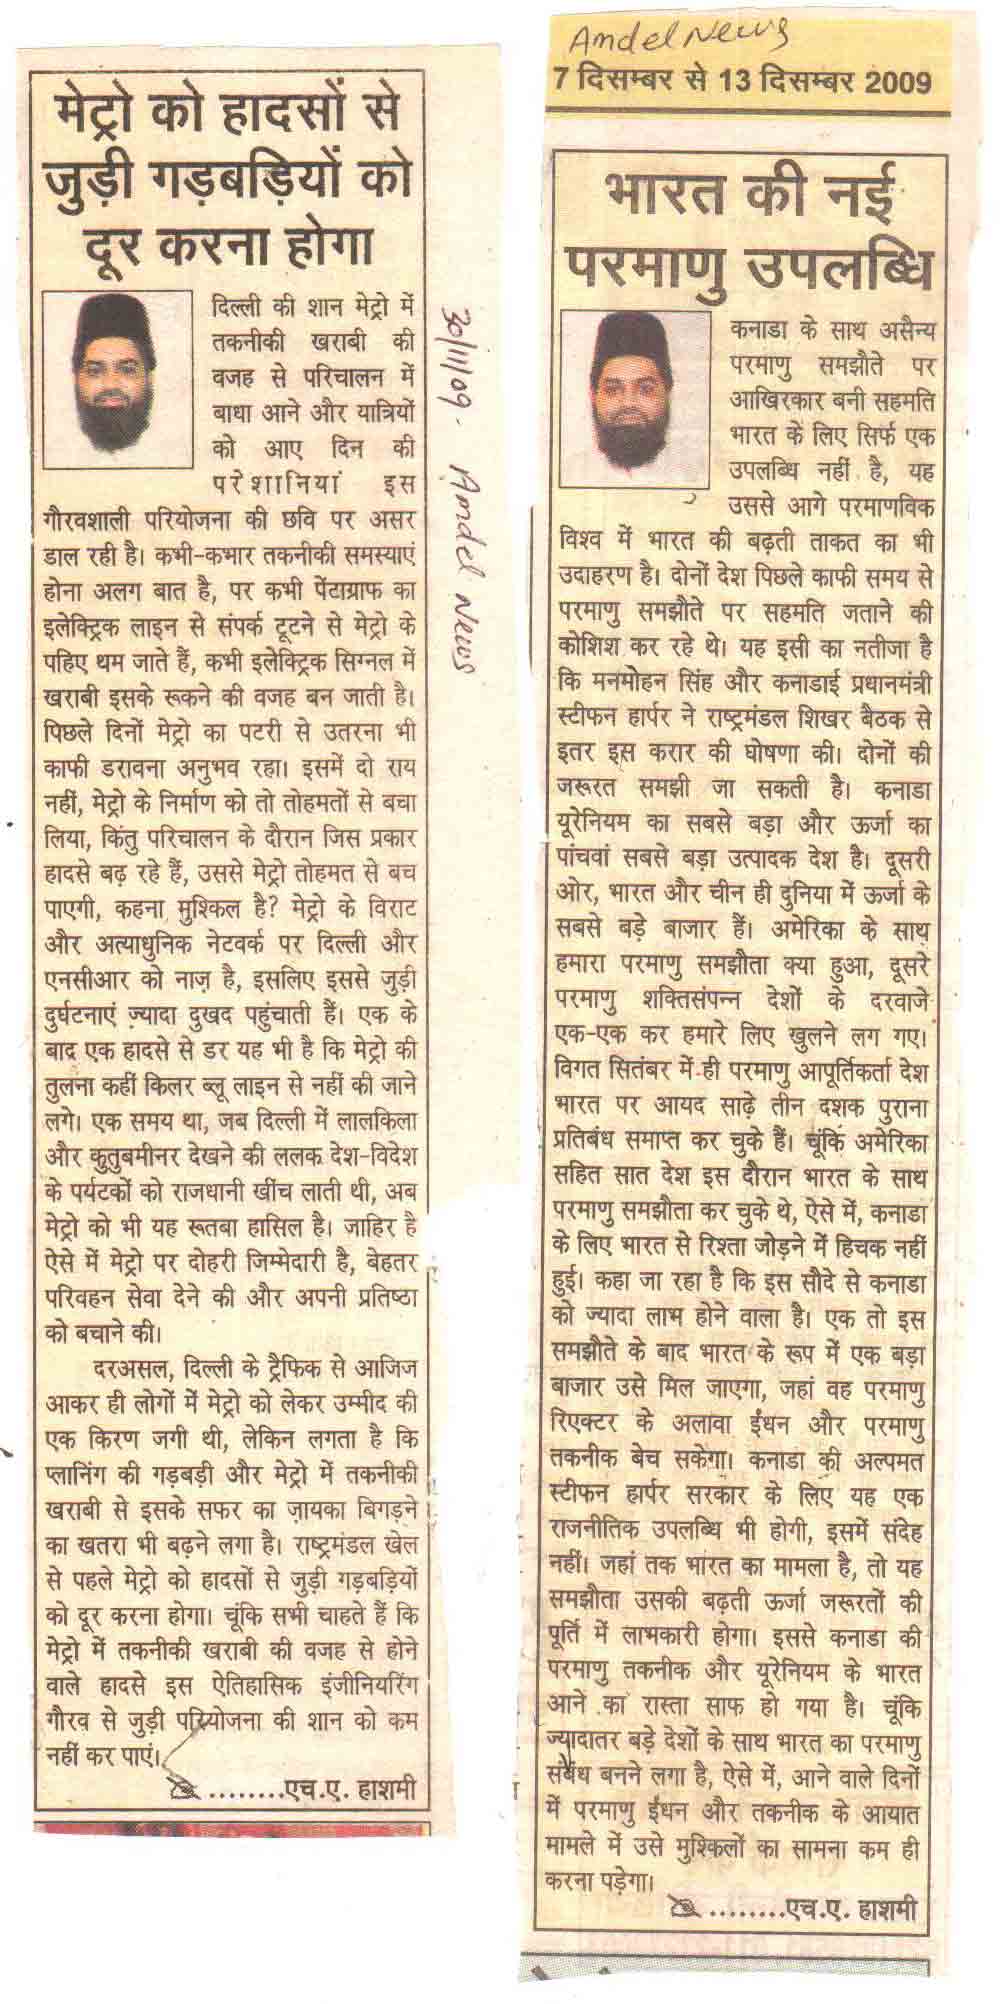 मेट्रो को हादसों से
जुड़ी गड़बड़ियों को
दूर करना होगा
दिल्ली की शान मेट्रो में
तकनीकी खराबी की
वजह से परिचालन में
बाधा आने और यात्रियों
को आए दिन की
परेशानियां इस
गौरवशाली परियोजना की छवि पर असर
डाल रही है। कभी-कभार तकनीकी समस्याएं
होना अलग बात है, पर कभी पेंटाग्राफ का
इलेक्ट्रिक लाइन से संपर्क टूटने से मेट्रो के
पहिए थम जाते हैं, कभी इलेक्ट्रिक सिग्नल में
खराबी इसके रूकने की वजह बन जाती है।
पिछले दिनों मेट्रो का पटरी से उतरना भी
काफी डरावना अनुभव रहा। इसमें दो राय
नहीं, मेट्रो के निर्माण को तो तोहमतों से बचा
लिया, किंतु परिचालन के दौरान जिस प्रकार
हादसे बढ़ रहे हैं, उससे मेट्रो तोहमत से बच
पाएगी, कहना मुश्किल है? मेट्रो के विराट
और अत्याधुनिक नेटवर्क पर दिल्ली और
एनसीआर को नाज़ है, इसलिए इससे जुड़ी
दुर्घटनाएं ज़्यादा दुखद पहुंचाती हैं। एक के
बाद एक हादसे से डर यह भी है कि मेट्रो की
तुलना कहीं किलर ब्लू लाइन से नहीं की जाने
लगे। एक समय था, जब दिल्ली में लालकिला
और कुतुबमीनर देखने की ललक देश-विदेश
के पर्यटकों को राजधानी खींच लाती थी, अब
मेट्रो को भी यह रूतबा हासिल है। जाहिर है
ऐसे में मेट्रो पर दोहरी जिम्मेदारी है, बेहतर
परिवहन सेवा देने की और अपनी प्रतिष्ठा
को बचाने की।
दरअसल, दिल्ली के ट्रैफिक से आजिज
आकर ही लोगों में मेट्रो को लेकर उम्मीद की
एक किरण जगी थी, लेकिन लगता है कि
प्लानिंग की गड़बड़ी और मेट्रो में तकनीकी
खराबी से इसके सफर का ज़ायका बिगड़ने
का खतरा भी बढ़ने लगा है। राष्ट्रमंडल खेल
से पहले मेट्रो को हादसों से जुड़ी गड़बड़ियों
को दूर करना होगा। चूंकि सभी चाहते हैं कि
मेट्रो में तकनीकी खराबी की वजह से होने
वाले हादसे इस ऐतिहासिक इंजीनियरिंग
गौरव से जुड़ी परियोजना की शान को कम
नहीं कर पाएं।
........एच.ए. हाशमी
30/11/09. Amdel News
Amdel News
7 दिसम्बर से 13 दिसम्बर 2009
भारत की नई
परमाणु उपलब्धि
कनाडा के साथ असैन्य
परमाणु समझौते पर
आखिरकार बनी सहमति
भारत के लिए सिर्फ एक
उपलब्धि नहीं है, यह
उससे आगे परमाणविक
विश्व में भारत की बढ़ती ताकत का भी
उदाहरण है। दोनों देश पिछले काफी समय से
परमाणु समझौते पर सहमति जताने की
कोशिश कर रहे थे। यह इसी का नतीजा है
कि मनमोहन सिंह और कनाडाई प्रधानमंत्री
स्टीफन हार्पर ने राष्ट्रमंडल शिखर बैठक से
इतर इस करार की घोषणा की। दोनों की
जरूरत समझी जा सकती है। कनाडा
यूरेनियम का सबसे बड़ा और ऊर्जा का
पांचवां सबसे बड़ा उत्पादक देश है। दूसरी
ओर, भारत और चीन ही दुनिया में ऊर्जा के
सबसे बड़े बाजार हैं। अमेरिका के साथ
हमारा परमाणु समझौता क्या हुआ, दूसरे
परमाणु शक्तिसंपन्न देशों के दरवाजे
एक-एक कर हमारे लिए खुलने लग गए।
विगत सितंबर में ही परमाणु आपूर्तिकर्ता देश
भारत पर आयद साढ़े तीन दशक पुराना
प्रतिबंध समाप्त कर चुके हैं। चूंकि अमेरिका
सहित सात देश इस दौरान भारत के साथ
परमाणु समझौता कर चुके थे, ऐसे में, कनाडा
के लिए भारत से रिश्ता जोड़ने में हिचक नहीं
हुई। कहा जा रहा है कि इस सौदे से कनाडा
को ज्यादा लाभ होने वाला है। एक तो इस
समझौते के बाद भारत के रूप में एक बड़ा
बाजार उसे मिल जाएगा, जहां वह परमाणु
रिएक्टर के अलावा ईंधन और परमाणु
तकनीक बेच सकेगा। कनाडा की अल्पमत
स्टीफन हार्पर सरकार के लिए यह एक
राजनीतिक उपलब्धि भी होगी, इसमें संदेह
नहीं। जहां तक भारत का मामला है, तो यह
समझौता उसकी बढ़ती ऊर्जा जरूरतों की
पूर्ति में लाभकारी होगा। इससे कनाडा की
परमाणु तकनीक और यूरेनियम के भारत
आने का रास्ता साफ हो गया है। चूंकि
ज्यादातर बड़े देशों के साथ भारत का परमाणु
संबंध बनने लगा है, ऐसे में, आने वाले दिनों
में परमाणु ईंधन और तकनीक के आयात
मामले में उसे मुश्किलों का सामना कम ही
करना पड़ेगा।
........एच.ए. हाशमी